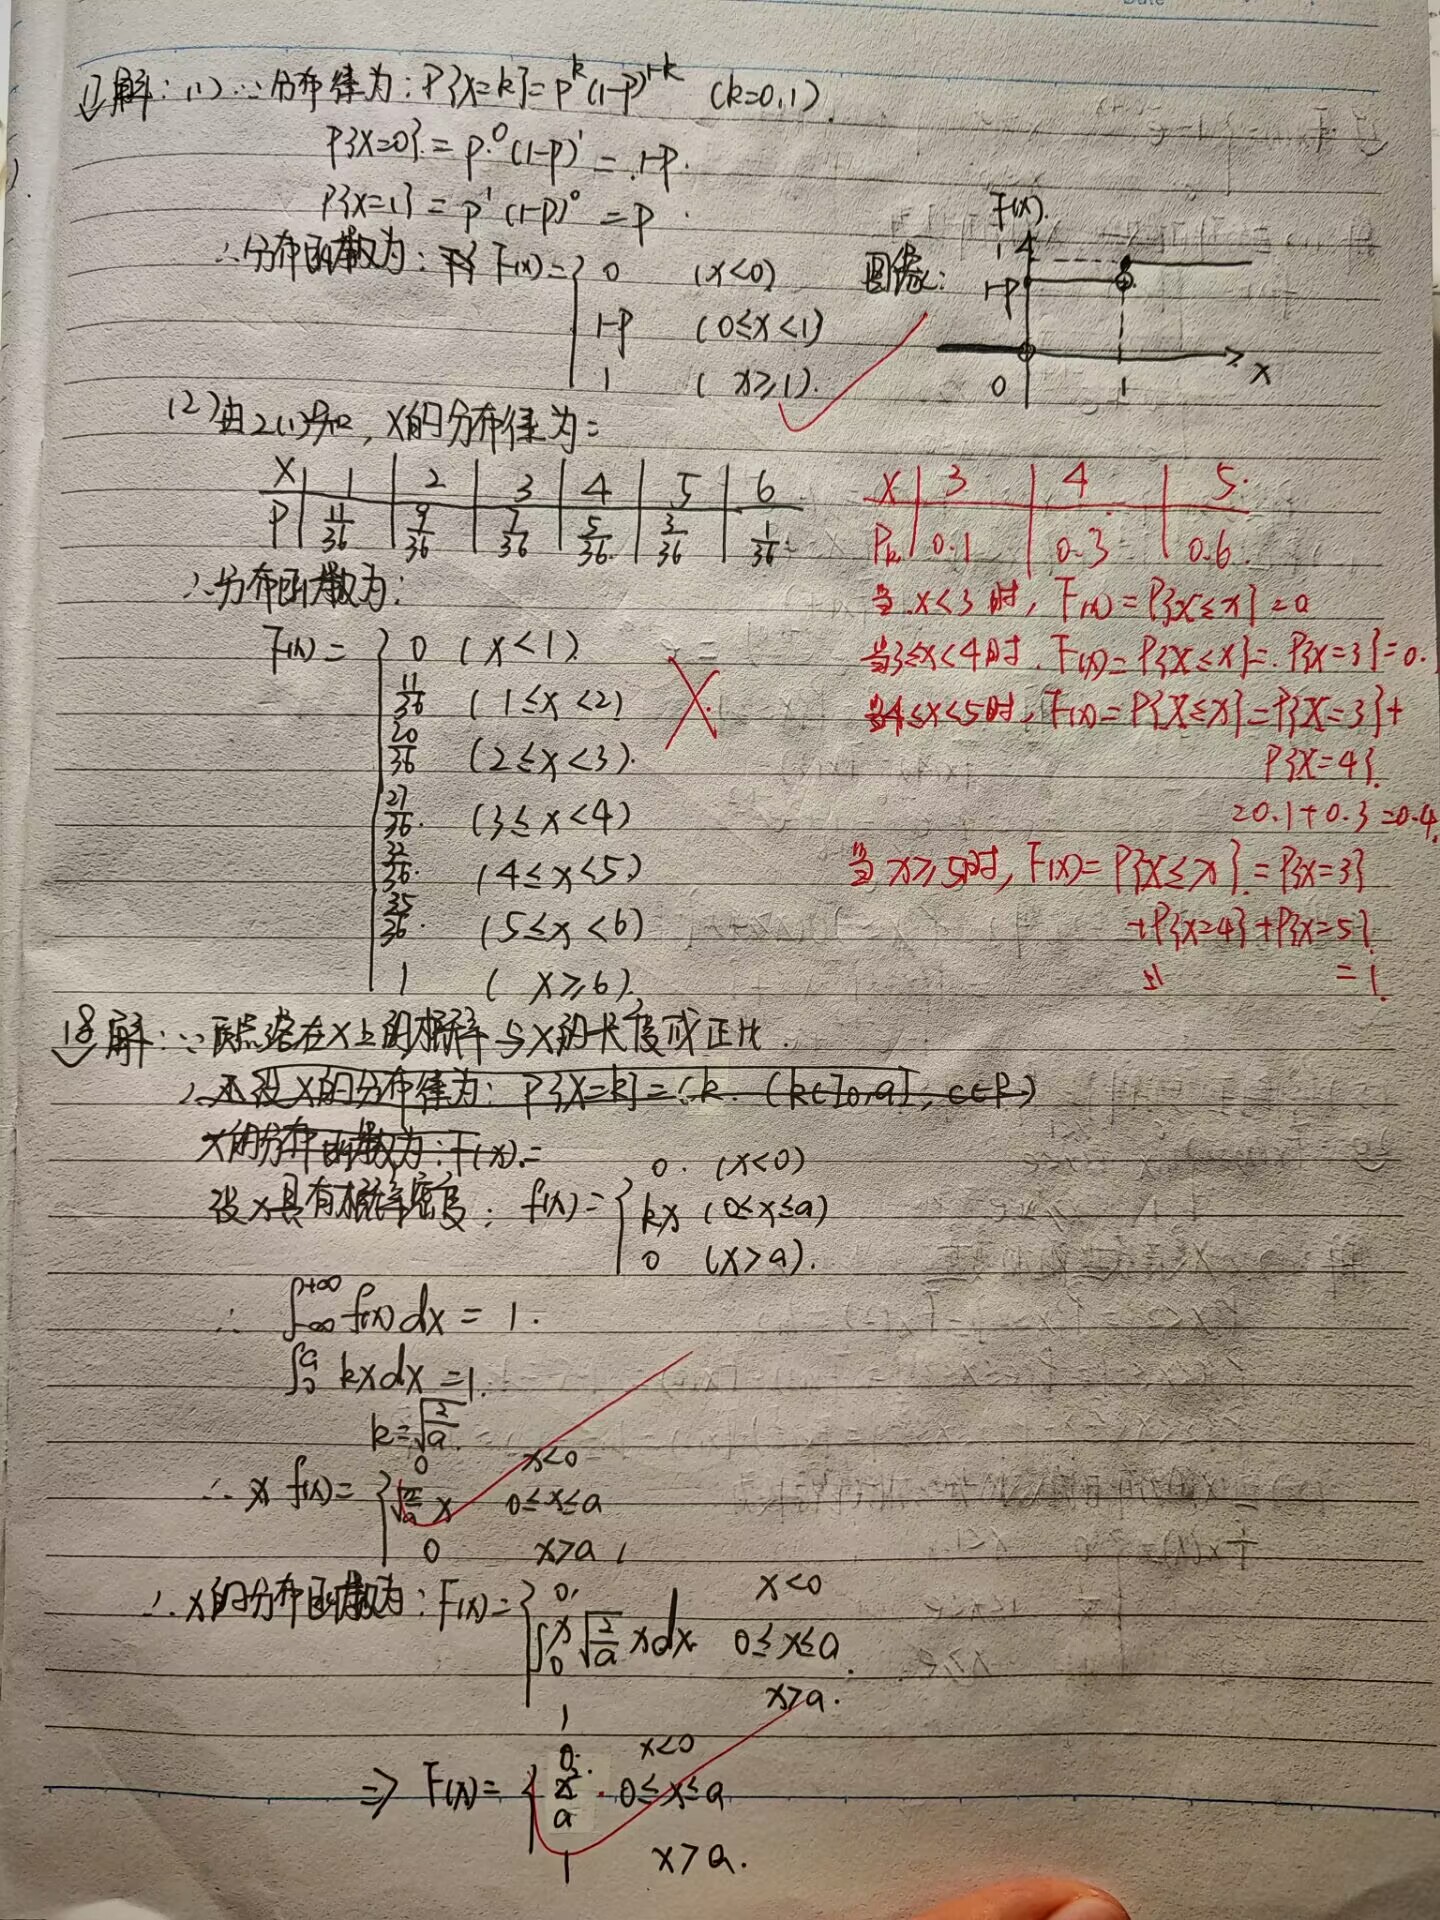 17解：(1) ∵分布律为：P{X=k}=p^k(1-p)^{1-k} (k=0,1).
P{X=0}=p^0(1-p)^1=1-p.
P{X=1}=p^1(1-p)^0=p.
∴分布函数为：F(x)={ 0 (x<0)
1-p (0≤x<1)
1 (x≥1).
图像：
F(x).
1
1-p
0 1 x
(2)由2(1)知，X的分布律为：
X | 1 | 2 | 3 | 4 | 5 | 6
P | 11/36 | 9/36 | 7/36 | 5/36 | 3/36 | 1/36
∴分布函数为：
F(x)={ 0 (x<1)
11/36 (1≤x<2)
20/36 (2≤x<3).
27/36 (3≤x<4)
32/36 (4≤x<5)
35/36 (5≤x<6)
1 (x≥6).
X | 3 | 4 | 5
Pk | 0.1 | 0.3 | 0.6
当x<3时，F(x)=P{X≤x}=0
当3≤x<4时.F(x)=P{X≤x}=P{X=3}=0.
当4≤x<5时，F(x)=P{X≤x}=P{X=3}+
P{X=4}.
=0.1+0.3=0.4.
当x≥5时，F(x)=P{X≤x}=P{X=3}
+P{X=4}+P{X=5}
=1.
18解：∵质点落在X上的概率与X的长度成正比.
设X的分布律为：P{X=k}=ck. (k∈[0,a], c∈R)
X的分布函数为：F(x)=
设X具有概率密度：f(x)={ 0. (x<0)
kx (0≤x≤a)
0 (x>a).
∴ ∫_{-∞}^{+∞} f(x)dx=1.
∫_0^a kxdx=1.
k=√(2/a)
∴ f(x)={ 0 x<0
√(2/a) x 0≤x≤a
0 x>a,
∴X的分布函数为：F(x)={ 0, x<0
∫_0^x √(2/a) xdx 0≤x≤a.
1 x>a.
⇒ F(x)={ 0. x<0
x/a 0≤x≤a
1 x>a.